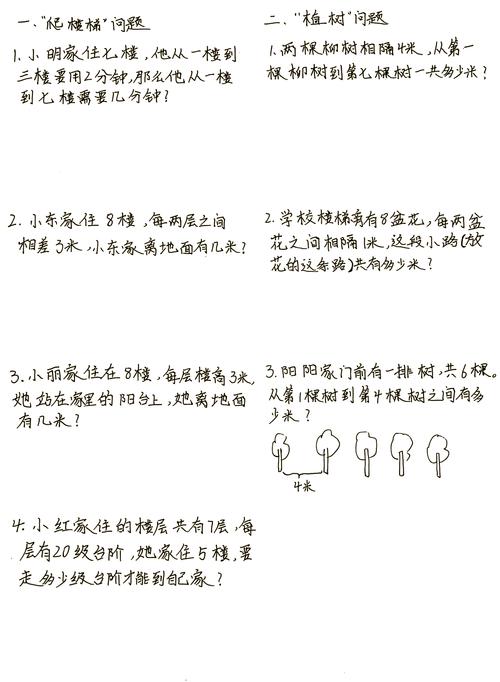 一、"爬楼梯"问题
1. 小明家住七楼,他从一楼到
三楼要用2分钟,那么他从一楼
到七楼需要几分钟?
2. 小东家住8楼,每两层之间
相差3米,小东家离地面有几米?
3. 小丽家住在8楼,每层楼高3米,
她站在家里的阳台上,她离地面
有几米?
4. 小红家住的楼层共有7层,每
层有20级台阶,她家住5楼,要
走多少级台阶才能到自己家?
二、"植树"问题
1. 两棵柳树相隔4米,从第一
棵柳树到第七棵树一共多少米?
2. 学校楼梯旁有8盆花,每两盆
花之间相隔1米,这段小路(放
花的这条路)共有多少米?
3. 阳阳家门前有一排树,共6棵。
从第1棵树到第4棵树之间有多
少米?
4米